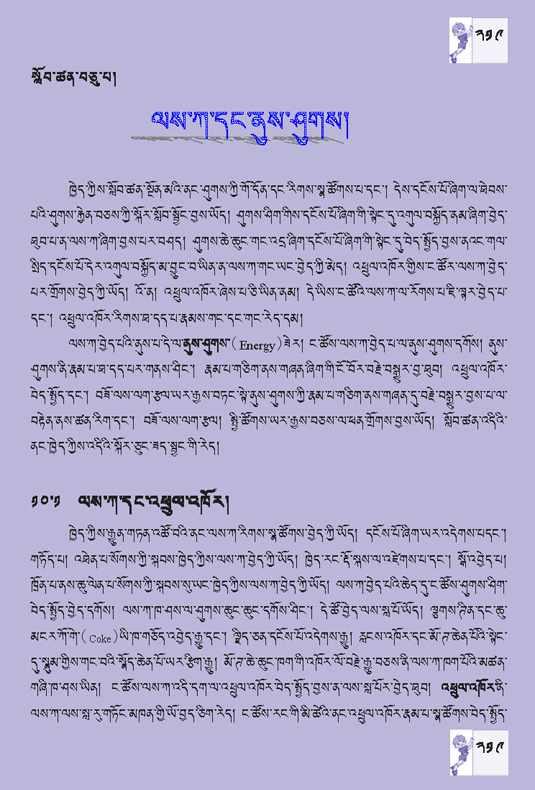 ༢༡༩
སློབ་ཚན་བཅུ་པ།
ལས་ཀ་དང་ནུས་ཤུགས།
ཁྱེད་ཀྱིས་སློབ་ཚན་སྔོན་མའི་ནང་ཤུགས་ཀྱི་གོ་དོན་དང་རིགས་སྣ་ཚོགས་པ་དང་། དེས་དངོས་པོ་ཞིག་ལ་ཐེབས་
པའི་ཤུགས་རྐྱེན་བཅས་ཀྱི་སྐོར་སློབ་སྦྱོང་བྱས་ཡོད། ཤུགས་ཤིག་གིས་དངོས་པོ་ཞིག་གི་སྟེང་དུ་འགུལ་བསྐྱོད་ནམ་ཞིག་བྱེད་
ཐུབ་པ་ན་ལས་ཀ་ཞིག་བྱས་པར་བཤད། ཤུགས་ཆེ་ཆུང་གང་འདྲ་ཞིག་དངོས་པོ་ཞིག་གི་སྟེང་དུ་བེད་སྤྱོད་བྱས་ནའང་གལ་
སྲིད་དངོས་པོ་དེར་འགུལ་བསྐྱོད་མ་བྱུང་བ་ཡིན་ན་ལས་ཀ་གང་ཡང་བྱེད་ཀྱི་མེད། འཕྲུལ་འཁོར་གྱིས་ང་ཚོར་ལས་ཀ་བྱེད་
པར་གྲོགས་བྱེད་ཀྱི་ཡོད། འོ་ན། འཕྲུལ་འཁོར་ཞེས་པ་ཅི་ཡིན་ནམ། དེ་ཡིས་ང་ཚོའི་ལས་ཀ་ལ་རོགས་པ་ཇི་ལྟར་བྱེད་པ་
དང་། འཕྲུལ་འཁོར་རིགས་མི་འདྲ་བ་རྣམས་གང་དང་གང་རེད་དམ།
ལས་ཀ་བྱེད་པའི་ནུས་པ་དེ་ལ་ནུས་ཤུགས་( Energy ) ཟེར། ང་ཚོས་ལས་ཀ་བྱེད་པ་ལ་ནུས་ཤུགས་དགོས། ནུས་
ཤུགས་ནི་རྣམ་པ་མི་འདྲ་བར་གནས་ཤིང་། རྣམ་པ་གཅིག་ནས་གཞན་ཞིག་གི་ངོ་བོར་བརྗེ་བསྒྱུར་བྱ་ཐུབ། འཕྲུལ་འཁོར་
བེད་སྤྱོད་དང་། བཟོ་ལས་ལག་རྩལ་ཡར་རྒྱས་བཏང་སྟེ་ནུས་ཤུགས་ཀྱི་རྣམ་པ་གཅིག་ནས་གཞན་དུ་བརྗེ་བསྒྱུར་བྱས་པ་ལ་
བརྟེན་ནས་ཚན་རིག་དང་། བཟོ་ལས་ལག་རྩལ། སྤྱི་ཚོགས་ཡར་རྒྱས་བཅས་ལ་ཕན་གྲོགས་བྱས་ཡོད། སློབ་ཚན་འདིའི་
ནང་ཁྱེད་ཀྱིས་འདིའི་སྐོར་ཅུང་ཟད་སྦྱང་གི་རེད།
༡༠་༡ ལས་ཀ་དང་འཕྲུལ་འཁོར།
ཁྱེད་ཀྱིས་རྒྱུན་གཏན་འཚོ་བའི་ནང་ལས་ཀ་རིགས་སྣ་ཚོགས་བྱེད་ཀྱི་ཡོད། དངོས་པོ་ཞིག་ཡར་འདེགས་པ་དང་།
གཏོད་པ། འཐེན་པ་སོགས་ཀྱི་སྐབས་ཁྱེད་ཀྱིས་ལས་ཀ་བྱེད་ཀྱི་ཡོད། ཁྱེད་རང་རྡོ་སྐས་ལ་འཛེགས་པ་དང་། སྒོ་འབྱེད་པ།
ཁྲོན་པ་ནས་ཆུ་ལེན་པ་སོགས་ཀྱི་སྐབས་སུ་ཡང་ཁྱེད་ཀྱིས་ལས་ཀ་བྱེད་ཀྱི་ཡོད། ལས་ཀ་བྱེད་པའི་ཆེད་དུ་ང་ཚོས་ཤུགས་ཤིག་
བེད་སྤྱོད་བྱེད་དགོས། ལས་ཀ་ཁ་ཤས་ལ་ཤུགས་ཆུང་ཆུང་དགོས་ཤིང་། དེ་ཚོ་བྱེད་ལས་སླ་པོ་ཡོད། ལྕགས་ཊིན་དང་ཆུ་
མངར་ཀོ་ཀེ་( Coke ) ཡི་ཁ་གཅོད་འབྱེད་རྒྱུ་དང་། ལྗིད་ཅན་དངོས་པོ་འདེགས་རྒྱུ། རླངས་འཁོར་དང་མོ་ཊ་ཆེན་པོའི་སྟེང་
དུ་སྣུམ་གྱིས་གང་བའི་སྣོད་ཆེན་པོ་ཡར་ཕྱིག་རྒྱུ། མོ་ཊ་ཆེ་ཆུང་ཁག་གི་འཁོར་ལོ་བརྗེ་རྒྱུ་བཅས་ནི་ལས་ཀ་ཁག་པོའི་མཚན་
གཞི་ཁ་ཤས་ཡིན། ང་ཚོས་ལས་ཀ་འདི་དག་ལ་འཕྲུལ་འཁོར་བེད་སྤྱོད་བྱས་ན་ལས་སླ་པོར་བྱེད་ཐུབ། འཕྲུལ་འཁོར་ནི་
ལས་ཀ་ལས་སླ་རུ་གཏོང་མཁན་གྱི་ཡོ་བྱད་ཅིག་རེད། ང་ཚོས་རང་གི་མི་ཚེའི་ནང་འཕྲུལ་འཁོར་རྣམ་པ་སྣ་ཚོགས་བེད་སྤྱོད་
༢༡༩